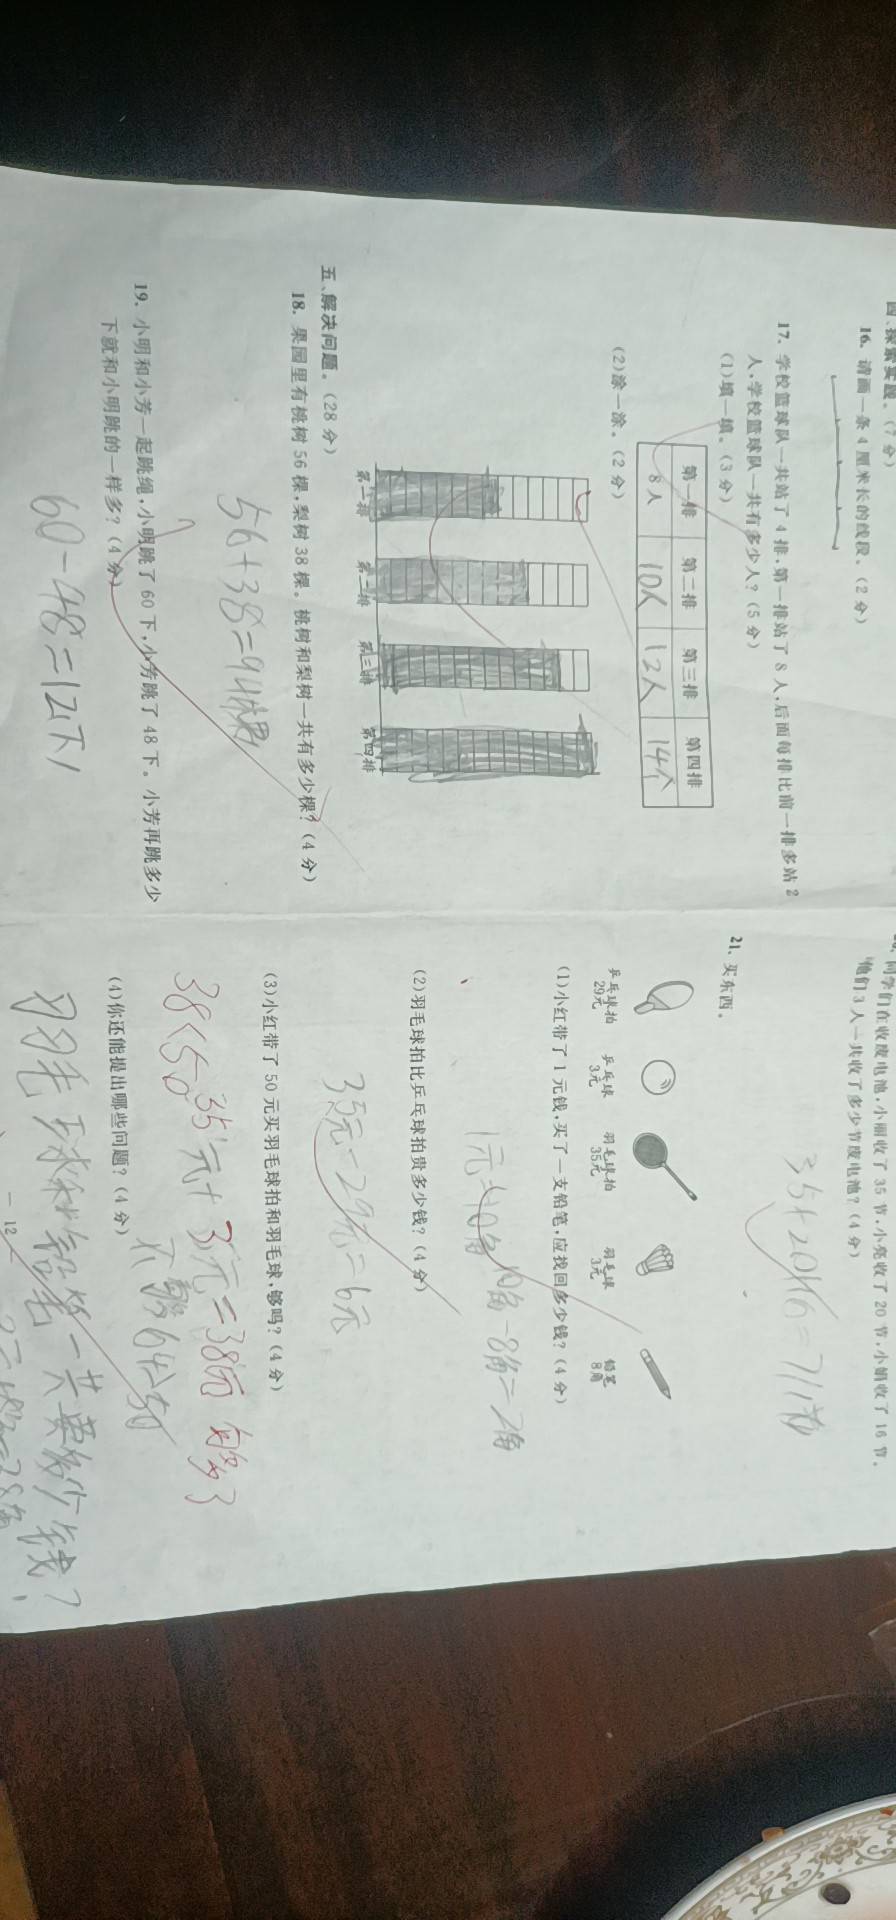 四、探索实践。(7分)
16. 请画一条4厘米长的线段。(2分)
17. 学校篮球队一共站了4排,第一排站了8人,后面每排比前一排多站2
人,学校篮球队一共有多少人?(5分)
(1)填一填。(3分)
第一排 第二排 第三排 第四排
8人 10人 12人 14个
(2)涂一涂。(2分)
第一排 第二排 第三排 第四排
五、解决问题。(28分)
18. 果园里有桃树56棵,梨树38棵。桃树和梨树一共有多少棵?(4分)
56+38=94棵
19. 小明和小芳一起跳绳,小明跳了60下,小芳跳了48下。小芳再跳多少
下就和小明跳的一样多?(4分)
60-48=12下
同学们在收废电池,小丽收了35节,小亮收了20节,小娟收了16节。
他们3人一共收了多少节废电池?(4分)
35+20+16=71节
21. 买东西。
乒乓球拍 乒乓球 羽毛球拍 羽毛球 铅笔
29元 3元 35元 3元 8角
(1)小红带了1元钱,买了一支铅笔,应找回多少钱?(4分)
1元=10角 10角-8角=2角
(2)羽毛球拍比乒乓球拍贵多少钱?(4分)
35元-29元=6元
(3)小红带了50元买羽毛球拍和羽毛球,够吗?(4分)
35元+3元=38元 够了
38<50
不够 64>50
(4)你还能提出哪些问题?(4分)
羽毛球和铅笔一共要多少钱?
12